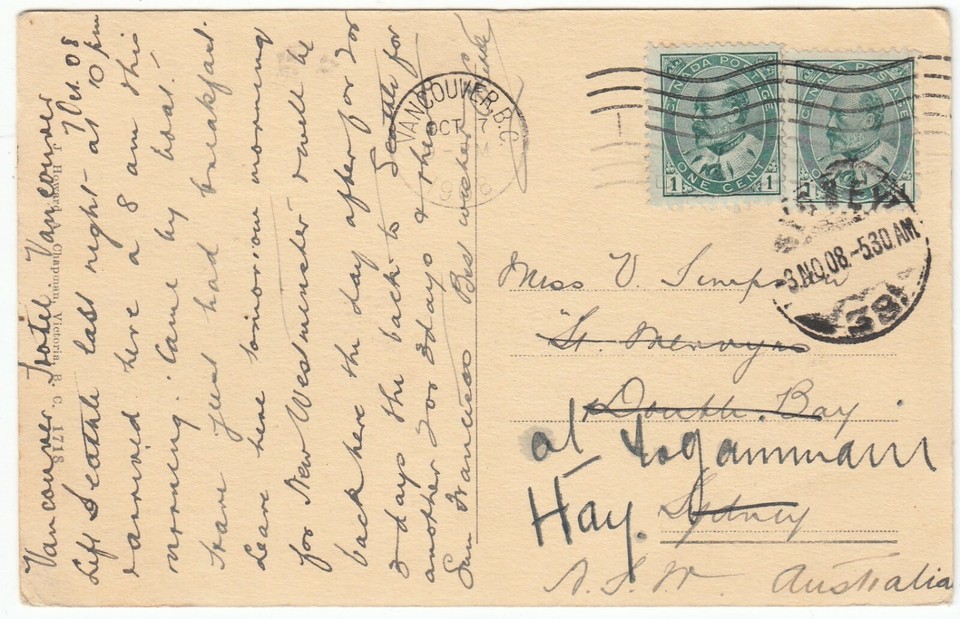 Vancouver Hotel Vancouver
Left Seattle last night at 10 pm 7 Oct. 08
& arrived here at 8 am this
morning. Came by boat.
Have just had breakfast.
Leave here tomorrow morning
for New Westminster & will be
back here the day after for 2 or
3 days then back to Seattle for
another 2 or 3 days & then
San Francisco Best wishes
J. Howard A. Chapman, Victoria, B. C. 1718
VANCOUVER, B.C.
OCT 7
CANADA POSTAGE
ONE CENT
1 1
CANADA POSTAGE
SYDNEY
3.NO.08.-5.30 AM
38
Miss V. Simpson
St. Mervyns
Double Bay
at Toganmain
Hay.
Sydney
N.S.W. Australia